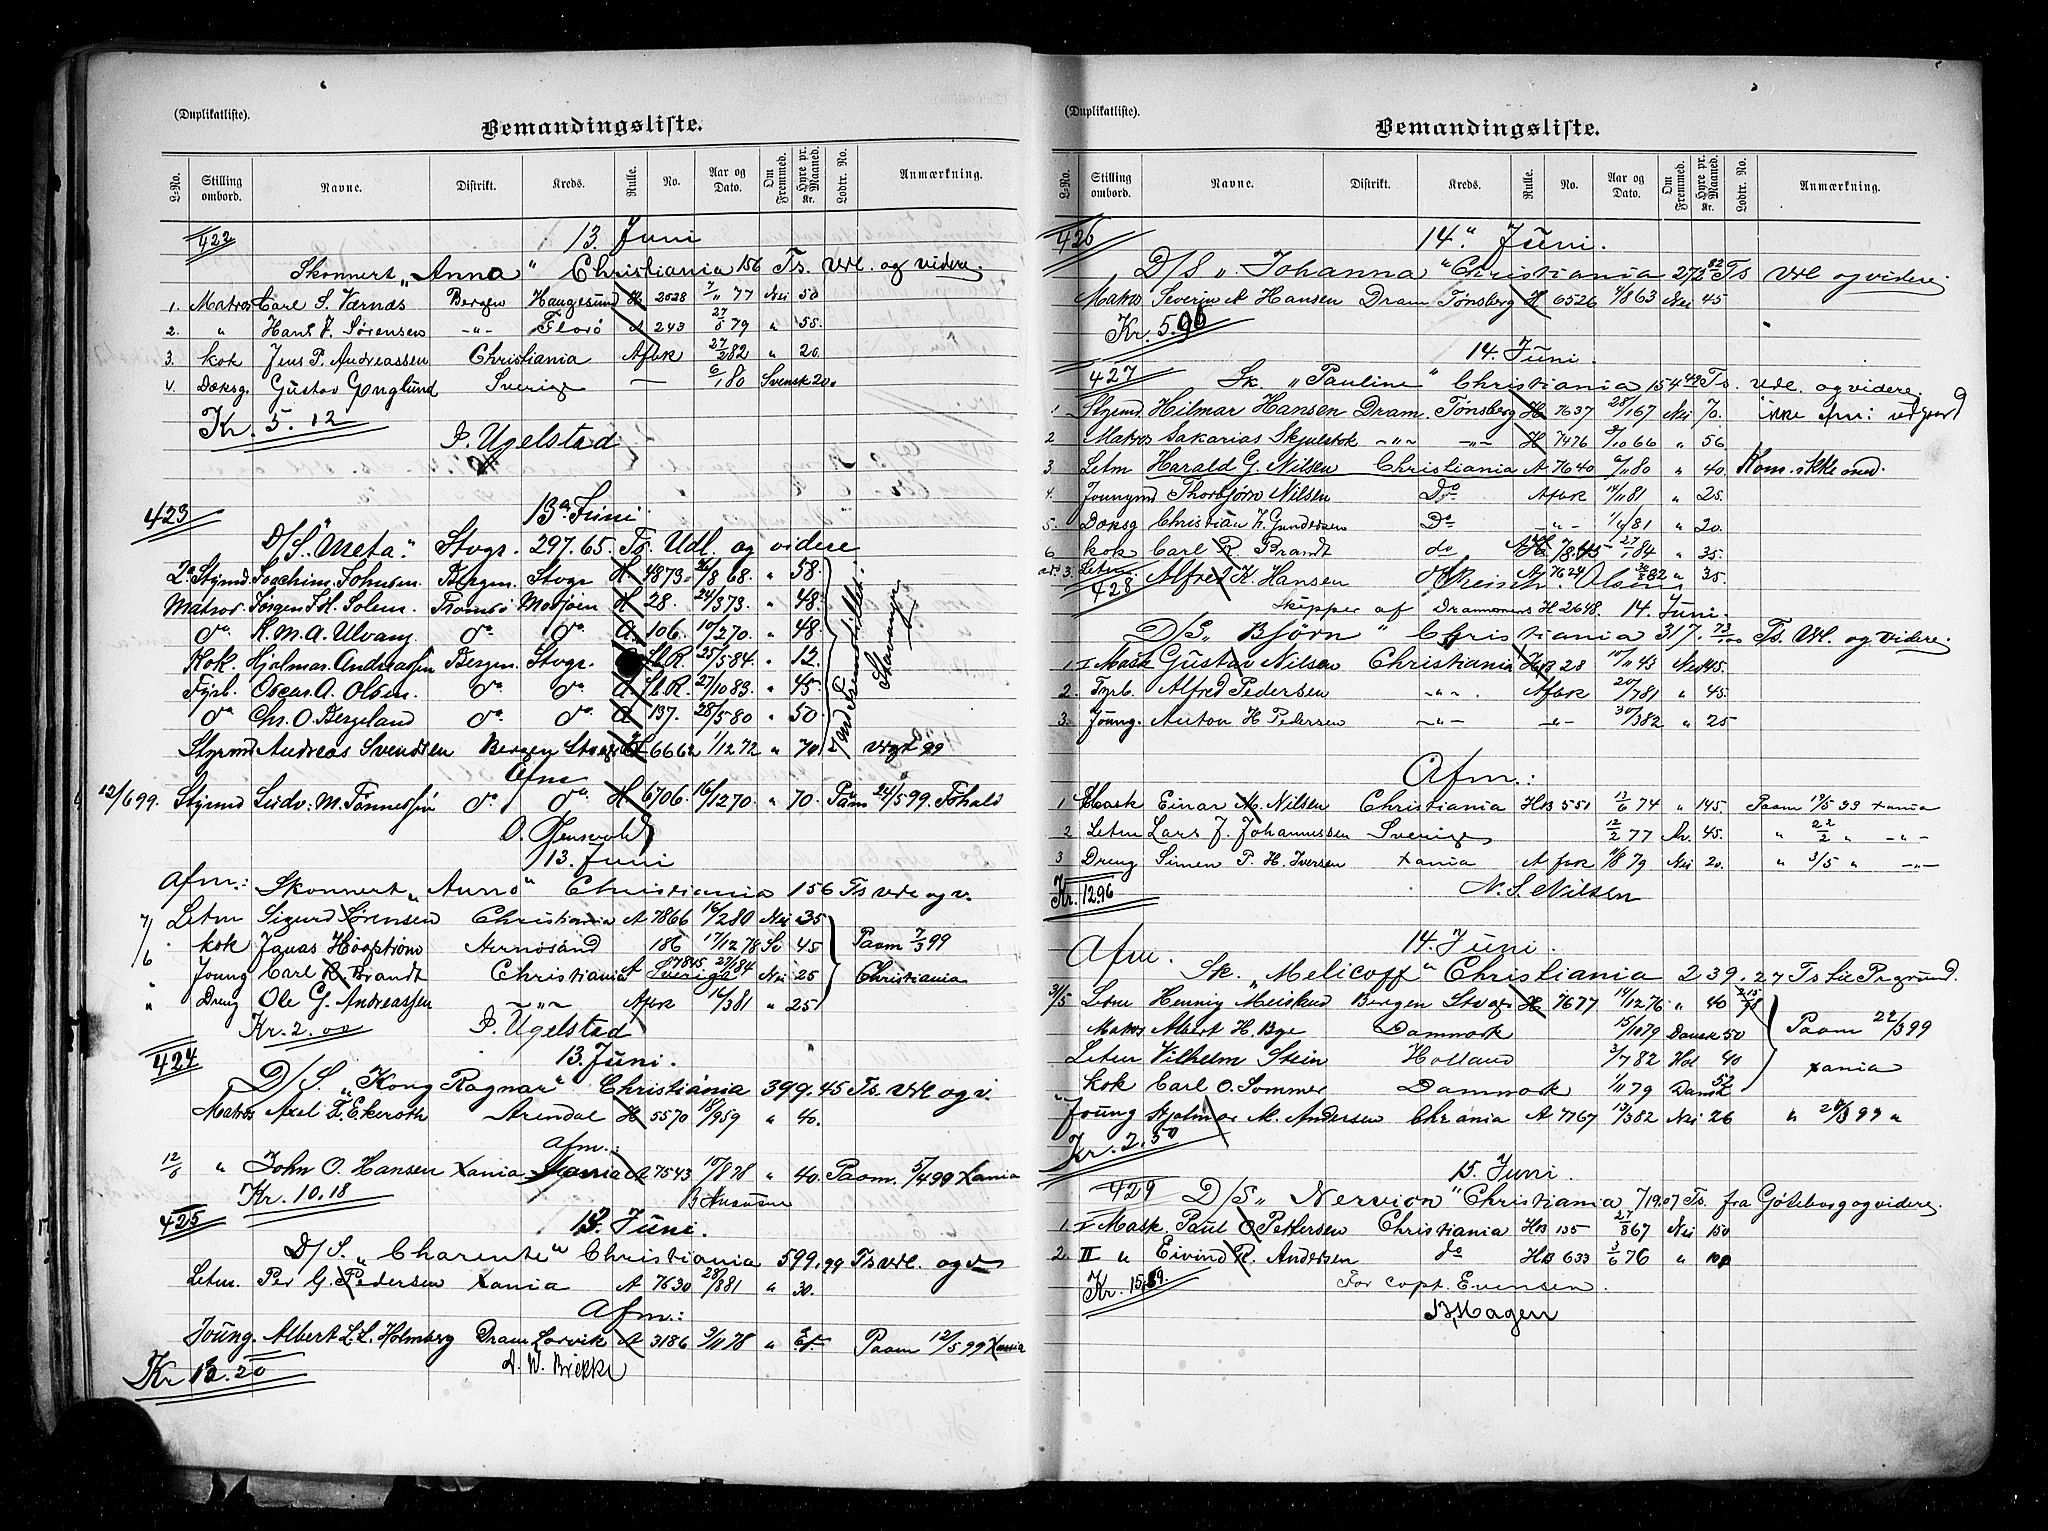 (Duplikatliste).
Bemandingsliste.
L-No. Stilling ombord. Navne. Distrikt. Kreds. Rulle. No. Aar og Dato. Om Fremmed. Hyre pr. Maaned. Kr. Lodtr. No. Anmærkning.
422 13 Juni
Skonnert „Anna“ Christiania 156 Ts. Udl. og videre.
1. Matros Carl S. Værnæs Bergen Haugesund H 2528 7/11 77 Nei 50
2. " Hans J. Sörensen -"- Florö A 243 27/5 79 " 55.
3. kok Jens P. Andreassen Christiania Afbk 27/2 82 " 20.
4. Dæksg. Gustav Englund Sverige — 6/1 80 Svensk 20.
Kr. 5. 12
P. Ugelstad
423 13 Juni
D/S. „Meta“ Stvgr. 297.65. Ts. Udl. og videre
2 Styrmd Joachim Johnsen. Bergen. Stvgr H 4873. 26/8 68. " 58.
Matros. Jørgen Solem. Tromsö Mosjöen H 28. 24/3 73. " 48.
do. K. M. A. Ulvang do. do. A. 106. 10/2 70. " 48
Kok. Hjalmar Andreassen Bergen. Stvgr. St.R. 25/5 84. " 12.
Fyrb. Oscar A. Olsen. do. do. A. St.R. 27/10 83. " 45
do. Chr. O. Bergeland do. do. A 137. 28/5 80 " 50.
Styrmd Andreas Svendsen Bergen Stvgr H 6662 1/12 72 " 70
Stavanger
Afm
12/6 99. Styrmd Ludv: M. Tönnessen do. do. H 6706. 16/12 70. " 70. Paam 24/5 99.
13. Juni
Afm.: Skonnert „Anna“ Christiania 156 Ts Udl og v.
7/6 Letm Sigurd Sörensen Christiania A 7866 16/2 80 Nei 35
kok Jonas Högström Hernösand 186 17/12 78 Sv 45 Paam 7/3 99
Joung Carl R. Brandt Christiania A 7845 27/1 84 Nei 25 Christiania
" Dreng Ole G. Andreassen -"- Afbk 16/3 81 " 25
Kr. 2. 00 P. Ugelstad
424 13. Juni.
D/S. „Kong Ragnar“ Christiania 399.45 Ts. Udl og v.
Matros Axel F. Ekeroth Arendal H 5570 18/9 59 " 40.
Afm.:
12/6 " John O. Hansen Xania Xania A 7543 10/8 78 " 40. Paam. 5/4 99 Xania
Kr. 10.18
425 13. Juni.
D/S. „Charente“ Christiania 599.99 Ts Udl. og v
Letm. Per G. Pedersen Xania A 7630 28/8 81 " 30.
Afm.:
Joung. Albert L. L. Holmberg Dram Larvik A 3186 9/11 78 " Paam 12/5 99 Xania
Kr 13.20 A. W. Brekke
(Duplikatliste).
Bemandingsliste.
L-No. Stilling ombord. Navne. Distrikt. Kreds. Rulle. No. Aar og Dato. Om Fremmed. Hyre pr. Maaned. Kr. Lodtr. No. Anmærkning.
426 14. Juni.
D/S „Johanna“ Christiania 272 82 Ts Udl og videre.
Matros Severin A Hansen Dram Tønsberg H 6526 4/8 63 Nei 45
Kr. 5.96
14. Juni.
427 Sk. „Pauline“ Christiania 154 42 Ts. Udl. og videre.
1 Styrmd Hilmar Hansen Dram. Tønsberg H 7637 28/1 67 Nei 70.
2 Matros Sakarias Skjulstok -"- -"- H 7476 9/10 66 " 56
3. Letm Harald G. Nilsen Christiania A 7640 6/11 80 " 40. Kom. ikke med.
4. Joungmd Thorbjørn Nilsen Do Afbk 14/11 81 " 25.
5. Dæksg Christian K. Gundersen Do -"- 1/6 81 " 20.
6 kok Carl R Brandt do A 7845 27/1 84 " 35.
Letm. Alfred K. Hansen do A 7624 30/8 82 " 35.
428 Skipper af Drammens H 2648. 14. Juni.
D/S „Björn“ Christiania 317. 72/100 Ts. Udl. og videre.
1 I Mask Gustav Nilsen Christiania HB 28 10/11 43 Nei 145.
2. Fyrb Alfred Pedersen -"- Afbk 20/7 81 " 45.
3. Joung. Anton H Pedersen -"- -"- 30/3 82 " 25
Afm.:
1 Mask Einar M. Nilsen Christiania HB 551 13/6 74 " 145 Paam 19/5 99 Xania
2 Letm Lars J. Johannessen Sverige 12/2 77 Sv. 45. " 22/2 " -"-
3 Dreng Simen P. H. Iversen Xania Afbk 11/8 79 Nei 20. " 3/5 " -"-
Kr. 12.96 N. S. Nilsen
Afm. 14. Juni.
Sk. „Melicoff“ Christiania 239.27 Ts til Prgrund.
3/5 Letm Hennig Bergen Stvgr H 7677 14/12 76 " 40
Matros Albert H. Bye Danmark 15/10 79 Dansk 50 Paam 22/3 99
Letm Vilhelm Stein Holland 3/7 82 Hol 40
kok Carl O. Sommer Danmark 1/11 79 Dansk 52 Xania
" Joung Hjalmar M. Andersen Chrania A 7767 13/3 82 Nei 26 " 28/3 99 "
Kr. 2.50
15. Juni.
429 D/S „Nervion“ Christiania 719.07 Ts. fra Göteborg og videre.
1 I Mask Paul O Pettersen Christiania HB 135 27/8 67 Nei 150
2. II " Eivind R. Andersen do HB 633 3/6 76 " 100
Kr. 15.89. For capt. Evensen.
B. Hagen